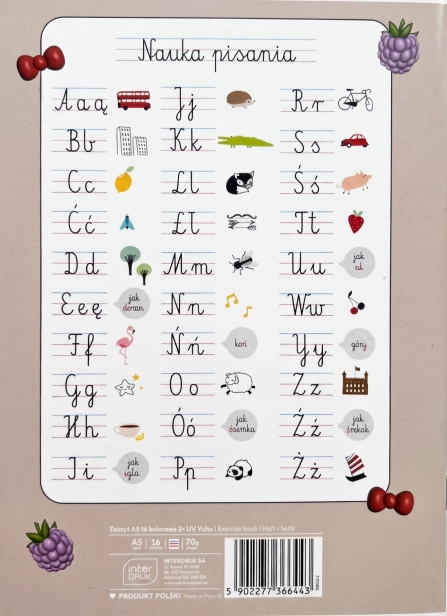 Nauka pisania
Aaą
Bb
Cc
Ćć
Dd
Eeę
jak
Ff
Gg
Hh
Ii
jak
igła
Jj
Kk
Ll
Łł
Mm
Nn
Ńń
koń
Oo
Óó
jak
ósemka
Pp
Rr
Ss
Śś
Tt
Uu
jak
ul
Ww
Yy
góry
Zz
Źź
jak
Żż
Zeszyt A5 16 kolorowa 2+ UV Vuhu | Exercise book | Heft | Sešit
A5 16 70g
inter
DRUK
INTERDRUK SA
PRODUKT POLSKI Made in Poland
5 902277 366443